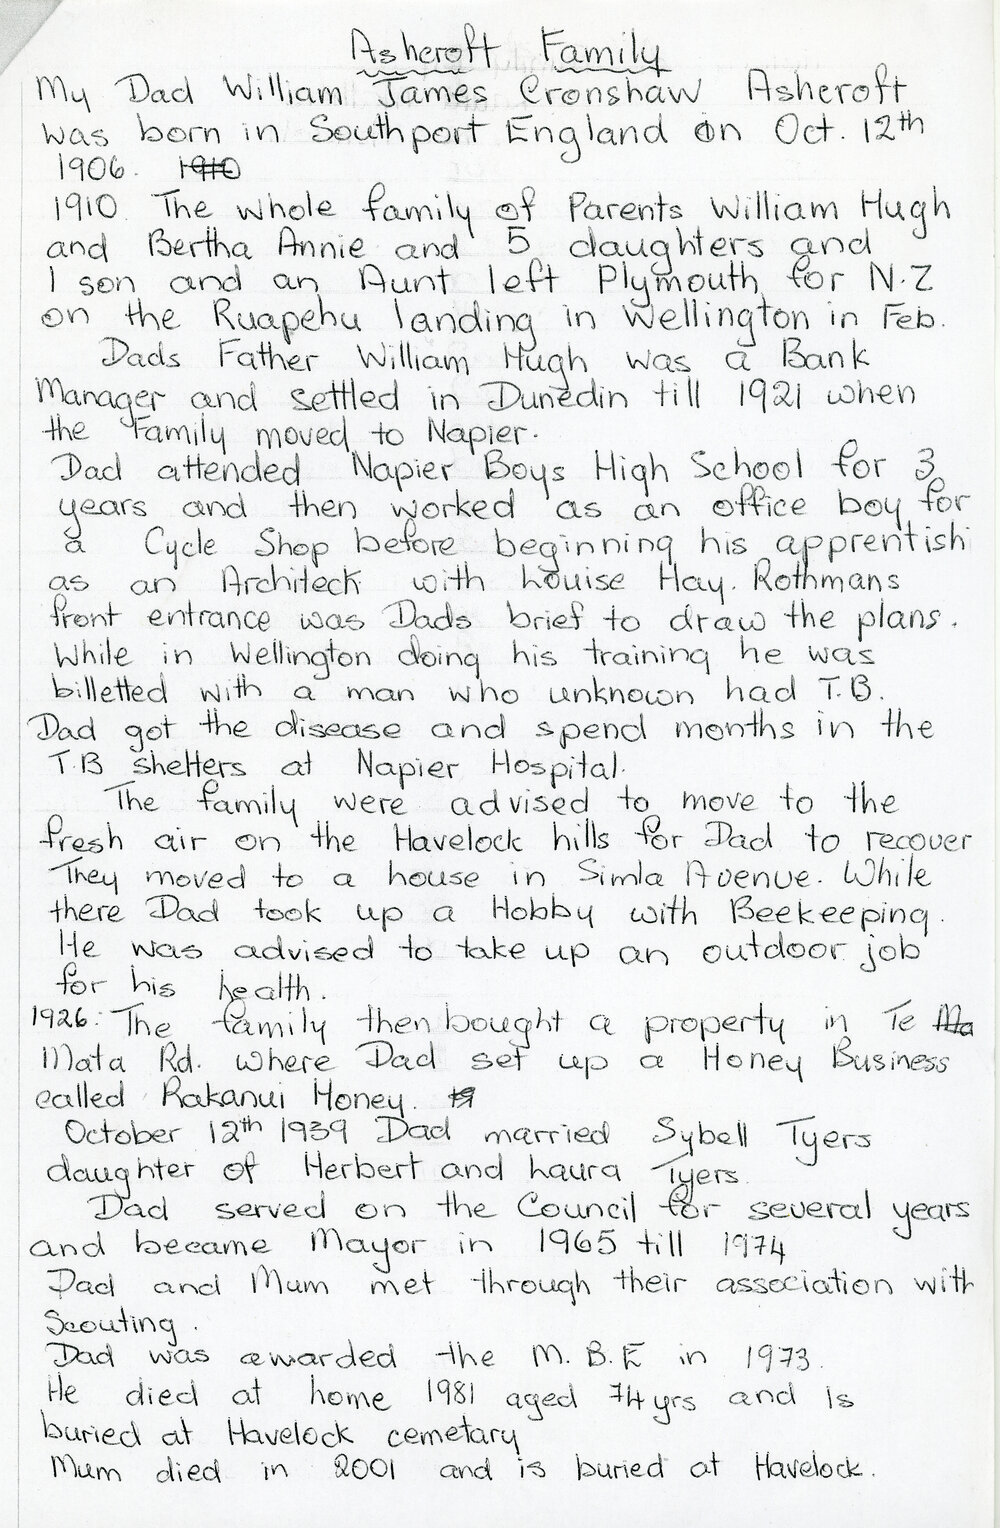 Ashcroft Family
My Dad William James Cronshaw Ashcroft
was born in Southport England on Oct. 12th
1906. 1910
1910 The whole family of Parents William Hugh
and Bertha Annie and 5 daughters and
1 son and an Aunt left Plymouth for N.Z
on the Ruapehu landing in Wellington in Feb.
Dads Father William Hugh was a Bank
Manager and settled in Dunedin till 1921 when
the Family moved to Napier.
Dad attended Napier Boys High School for 3
years and then worked as an office boy for
a Cycle Shop before beginning his apprentish
as an Architeck with Louise Hay. Rothmans
front entrance was Dads brief to draw the plans.
While in Wellington doing his training he was
billetted with a man who unknown had T.B.
Dad got the disease and spend months in the
T.B shelters at Napier Hospital.
The family were advised to move to the
fresh air on the Havelock hills for Dad to recover
They moved to a house in Simla Avenue. While
there Dad took up a Hobby with Beekeeping.
He was advised to take up an outdoor job
for his health.
1926: The family then bought a property in Te Ma
Mata Rd. where Dad set up a Honey Business
called Rakanui Honey.
October 12th 1939 Dad married Sybell Tyers
daughter of Herbert and Laura Tyers
Dad served on the Council for several years
and became Mayor in 1965 till 1974
Dad and Mum met through their association with
Scouting.
Dad was awarded the M.B.E in 1973.
He died at home 1981 aged 74 yrs and is
buried at Havelock cemetary
Mum died in 2001 and is buried at Havelock.